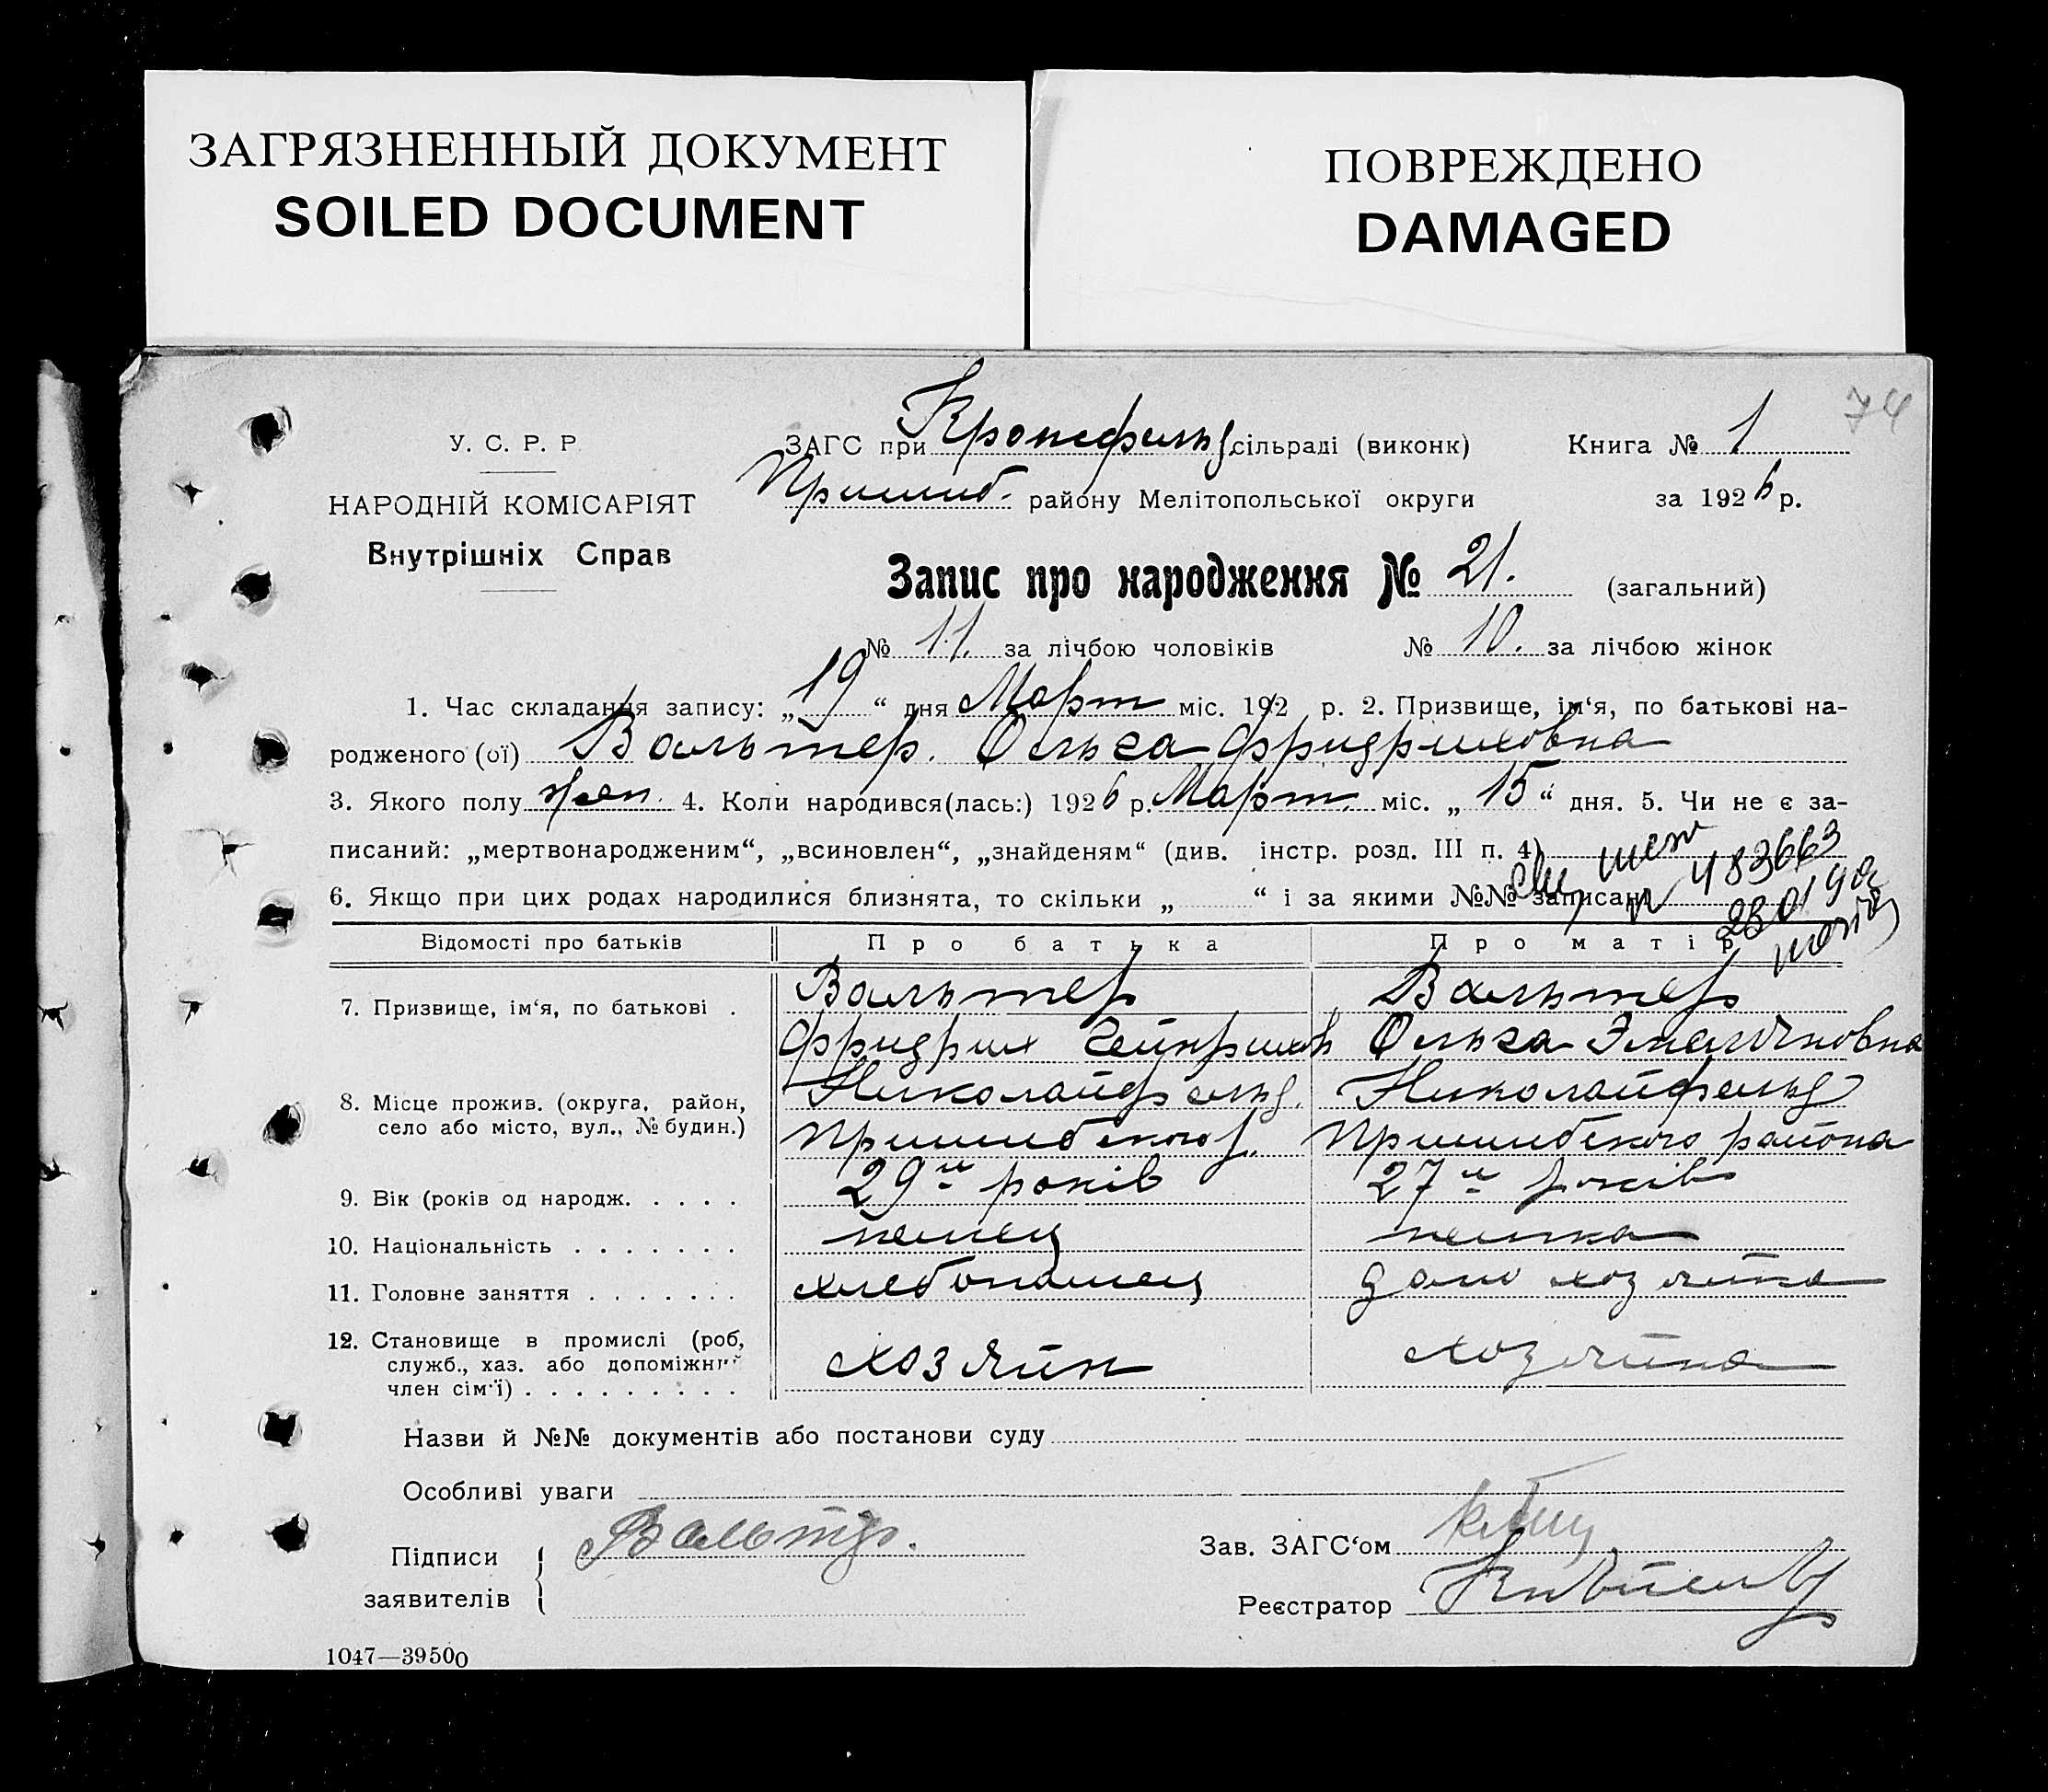 ЗАГРЯЗНЕННЫЙ ДОКУМЕНТ
SOILED DOCUMENT
ПОВРЕЖДЕНО
DAMAGED
74
У. С. Р. Р.
НАРОДНІЙ КОМІСАРІЯТ
Внутрішніх Справ
ЗАГС при Кронсфельд. сільраді (виконк) Книга № 1
Пришиб. району Мелітопольської округи за 1926 р.
Запис про народження № 21. (загальний)
№ 11. за лічбою чоловіків № 10. за лічбою жінок
1. Час складання запису: „19“ дня Март міс. 192 р. 2. Призвище, ім‘я, по батькові на-
родженого (ої) Вальтер. Ольга Фридриховна
3. Якого полу жен. 4. Коли народився(лась:) 1926 р. Март. міс. „15“ дня. 5. Чи не є за-
писаний: „мертвонародженим“, „всиновлен“, „знайденям“ (див. інстр. розд. III п. 4)
6. Якщо при цих родах народилися близнята, то скільки „ “ і за якими №№ записані
483663
Відомості про батьків Про батька Про матір
7. Призвище, ім‘я, по батькові . Вальтер Вальтер
Фридрих Гейнрихов Ольга
8. Місце прожив. (округа, район, село або місто, вул., № будин.) Николайфельд. Николайфельд
Пришибского р. Пришибского района
9. Вік (років од народж. . . . . 29 років 27 років
10. Національність . . . . . . . немец немка
11. Головне заняття . . . . . . . хлебопашец домохозяйка
12. Становище в промислі (роб, служб., хаз. або допоміжний член сім‘ї) . . . . . . . . . хозяин хозяйка
Назви й №№ документів або постанови суду
Особливі уваги
Підписи заявителів Вальтер.
Зав. ЗАГС‘ом
Реєстратор
1047—39500